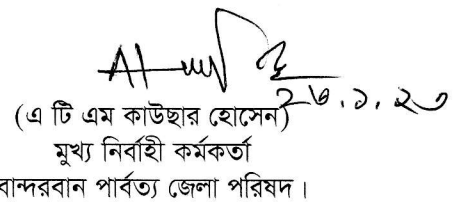 ২৬.১.২০
(এ টি এম কাউছার হোসেন)
মুখ্য নির্বাহী কর্মকর্তা
বান্দরবান পার্বত্য জেলা পরিষদ।